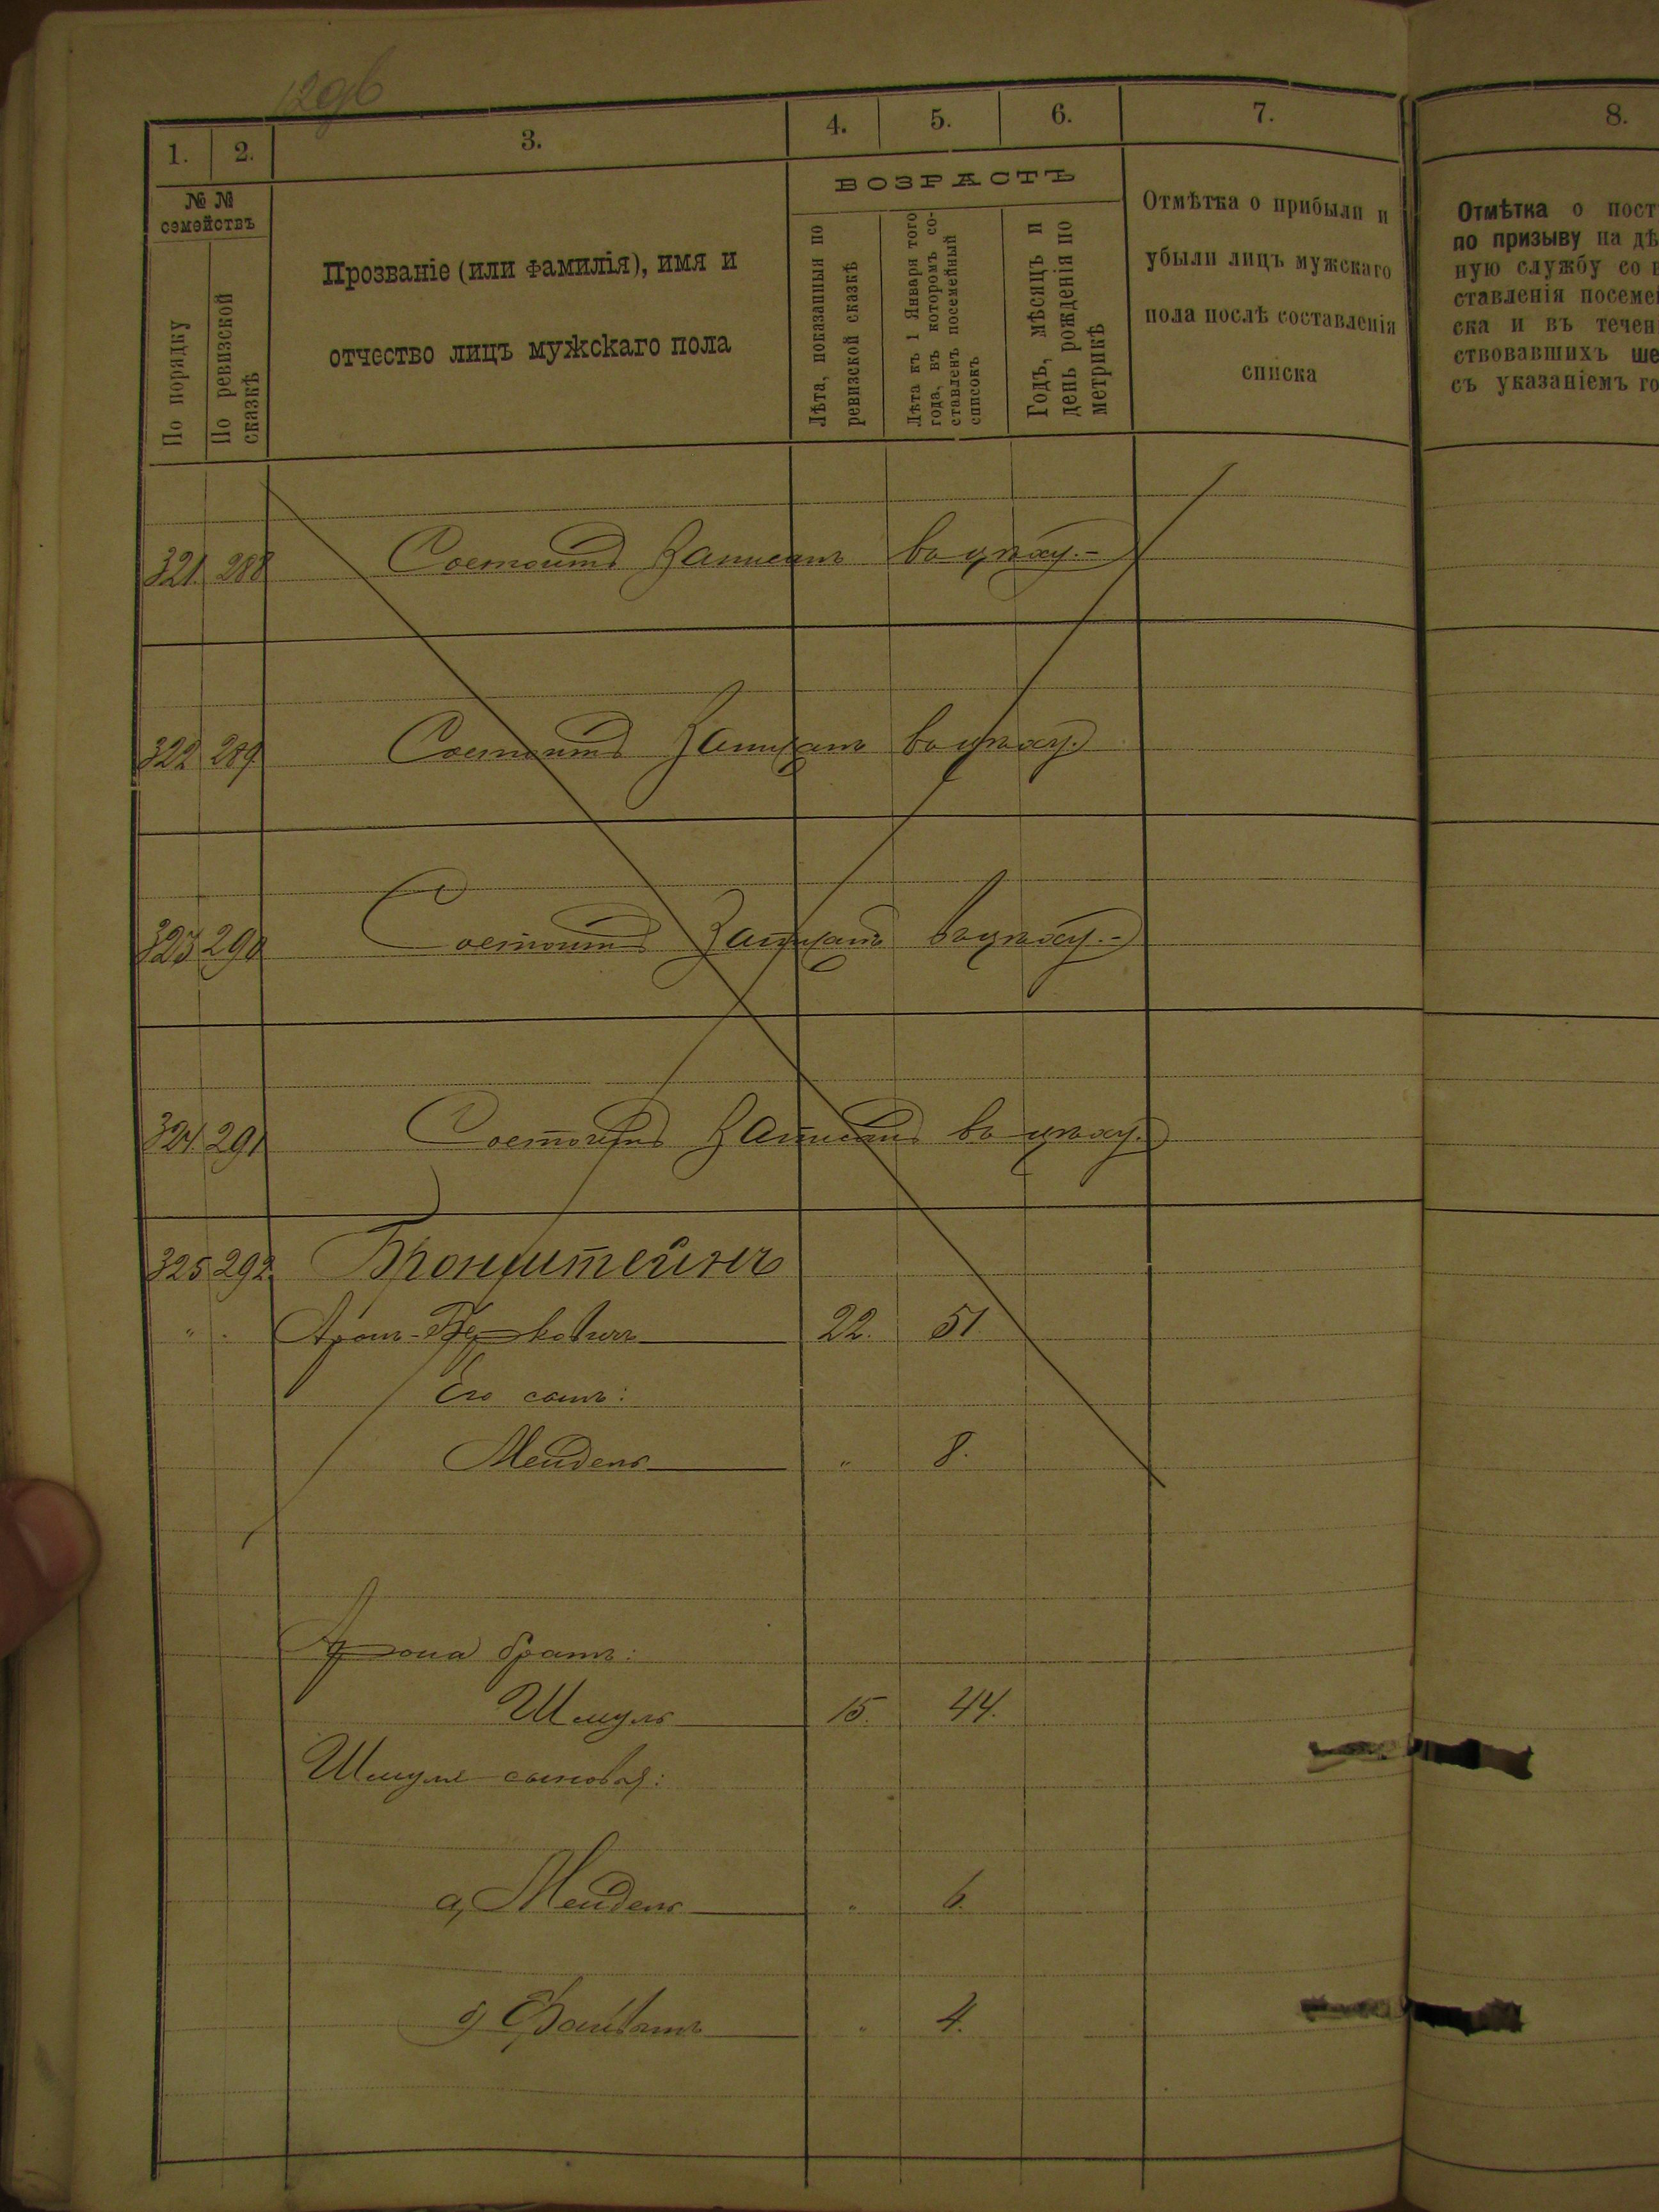 129б
1. 2. 3. 4. 5. 6. 7. 8.
№ №
семействъ
По порядку
По ревизской сказкѣ
Прозваніе (или фамилія), имя и
отчество лицъ мужскаго пола
ВОЗРАСТЪ
Лѣта, показанныя по
ревизской сказкѣ
Лѣта къ 1 Января того
года, въ которомъ со-
ставленъ посемейный
списокъ
Годъ, мѣсяцъ и
день рожденія по
метрикѣ
Отмѣтка о прибыли и
убыли лицъ мужскаго
пола послѣ составленія
списка
Отмѣтка о пост
по призыву на дѣ
ную службу со в
ставленія посеме
ска и въ течен
ствовавшихъ ше
съ указаніемъ го
321. 288 Состоитъ Записанъ въ цѣху.-
322 289. Состоитъ Записанъ въ цѣху.
323 290 Состоитъ Записанъ въ цѣху.-
324. 291 Состоитъ Записанъ въ цѣху.
325 292. Бронштейнъ
" . Аронъ-Берковичъ 22. 51
Его сынъ:
Мендель " 8.
Арона братъ:
Шмуль 15. 44.
Шмуля сыновья:
а, Мендель " 6.
б) " 4.